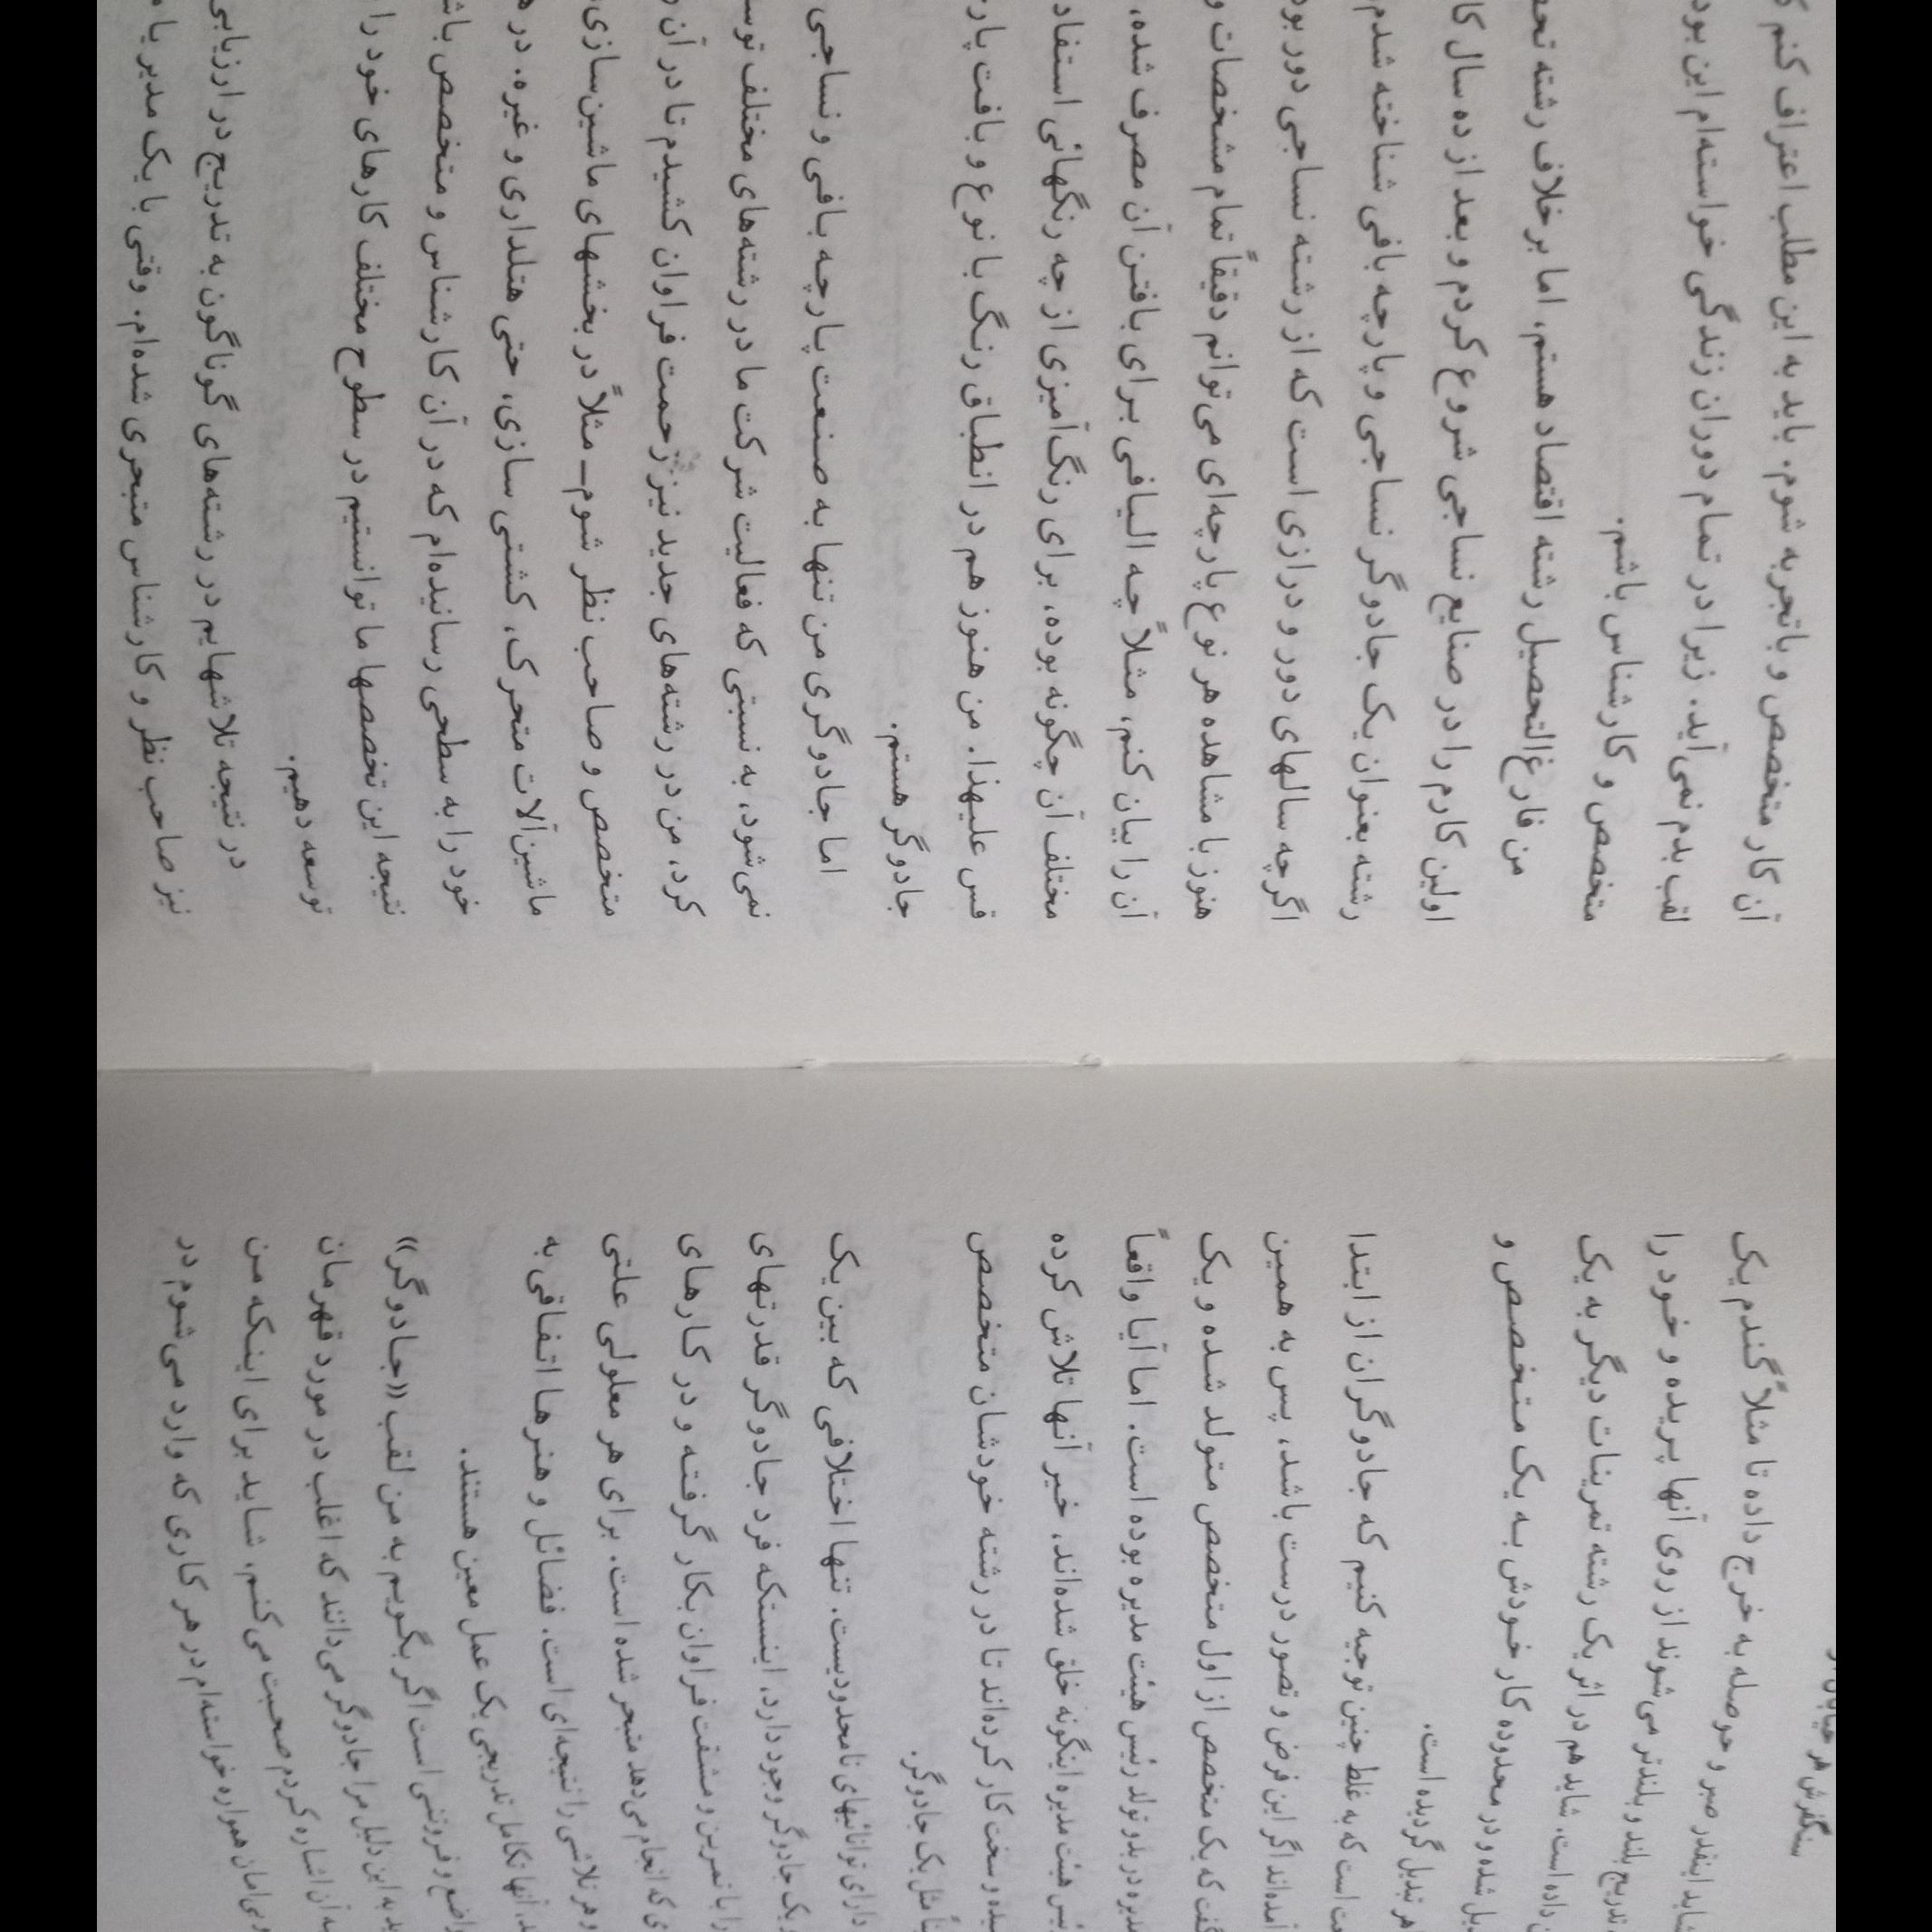 سنگفرش هر خیابان از
شاید اینقدر صبر و حوصله به خرج داده تا مثلاً گندم یک
تدریج بلند و بلندتر می‌شوند از روی آنها پریده و خود را
داده است. شاید هم در اثر یک رشته تمرینات دیگر به یک
شده و در محدوده کار خودش به یک متخصص و
تبدیل گردیده است.
است که به غلط چنین توجیه کنیم که جادوگران از ابتدا
آمده‌اند اگر این فرض و تصور درست باشد، پس به همین
گفت که یک متخصص از اول متخصص متولد شده و یک
مدیره در بدو تولد رئیس هیئت مدیره بوده است. اما آیا واقعاً
هیئت مدیره اینگونه خلق شده‌اند. خیر آنها تلاش کرده
و سخت کار کرده‌اند تا در رشته خودشان متخصص
مثل یک جادوگر.
دارای توانائیهای نامحدودیست. تنها اختلافی که بین یک
و یک جادوگر وجود دارد، اینستکه فرد جادوگر قدرتهای
را با تمرین و مشقت فراوان بکار گرفته و در کارهای
که انجام می‌دهد متبحر شده است. برای هر معلولی علتی
و هر تلاشی را نتیجه‌ای است. فضائل و هنرها اتفاقی به
آنها تکامل تدریجی یک عمل معین هستند.
و فروتنی است اگر بگویم به من لقب «جادوگر»
به این دلیل مرا جادوگر می‌دانند که اغلب در مورد قهرمان
به آن اشاره کردم صحبت می‌کنم، شاید برای اینکه من
بی‌امان همواره خواسته‌ام در هر کاری که وارد می‌شوم در
آن کار متخصص و باتجربه شوم. باید به این مطلب اعتراف کنم
لقب بدم نمی‌آید. زیرا در تمام دوران زندگی خواسته‌ام این بود
متخصص و کارشناس باشم.
من فارغ‌التحصیل رشته اقتصاد هستم، اما برخلاف رشته
اولین کارم را در صنایع نساجی شروع کردم و بعد از ده سال
رشته بعنوان یک جادوگر نساجی و پارچه بافی شناخته شدم
اگرچه سالهای دور و درازی است که از رشته نساجی دور
هنوز با مشاهده هر نوع پارچه‌ای می‌توانم دقیقاً تمام مشخصات و
آن را بیان کنم، مثلاً چه الیافی برای بافتن آن مصرف شده،
مختلف آن چگونه بوده، برای رنگ‌آمیزی از چه رنگهائی
قس علیهذا. من هنوز هم در انطباق رنگ با نوع و بافت
جادوگر هستم.
اما جادوگری من تنها به صنعت پارچه بافی و نساجی
نمی‌شود، به نسبتی که فعالیت شرکت ما در رشته‌های مختلف
کرد، من در رشته‌های جدید نیز زحمت فراوان کشیدم تا در آن
متخصص و صاحب نظر شوم ـ مثلاً در بخشهای ماشین‌سازی،
ماشین‌آلات متحرک، کشتی سازی، حتی هتلداری و غیره. در
خود را به سطحی رسانیده‌ام که در آن کارشناس و متخصص
نتیجه این تخصصها ما توانستیم در سطوح مختلف کارهای خود را
توسعه دهیم.
در نتیجه تلاشهایم در رشته‌های گوناگون به تدریج در ارزیابی
نیز صاحب نظر و کارشناس متبحری شده‌ام. وقتی با یک مدیر یا